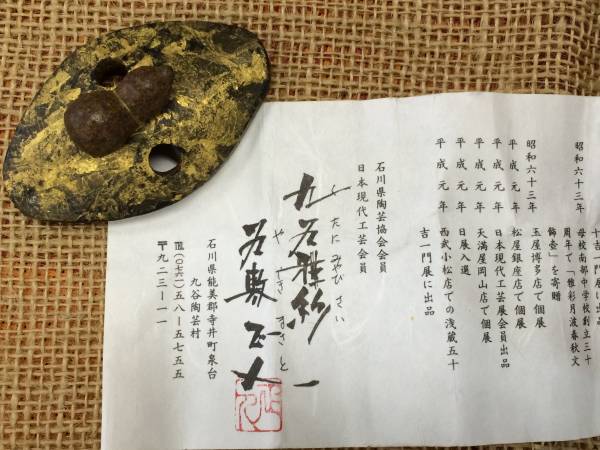 昭和六十三年 母校南部中学校創立三十
周年で「雅彩月波春秋文
飾壺」を寄贈
昭和六十三年 玉屋博多店で個展
平成元年 松屋銀座店で個展
平成元年 日本現代工芸展会員出品
平成元年 天満屋岡山店で個展
平成元年 日展入選
平成元年 西武小松店での浅蔵五十
吉一門展に出品
石川県陶芸協会会員
日本現代工芸会員
九谷雅彩
くたにみやびさい
やしきまさと
石川県能美郡寺井町泉台
九谷陶芸村
℡(〇七六一)五八ー五七五五
〒九二三ー一一